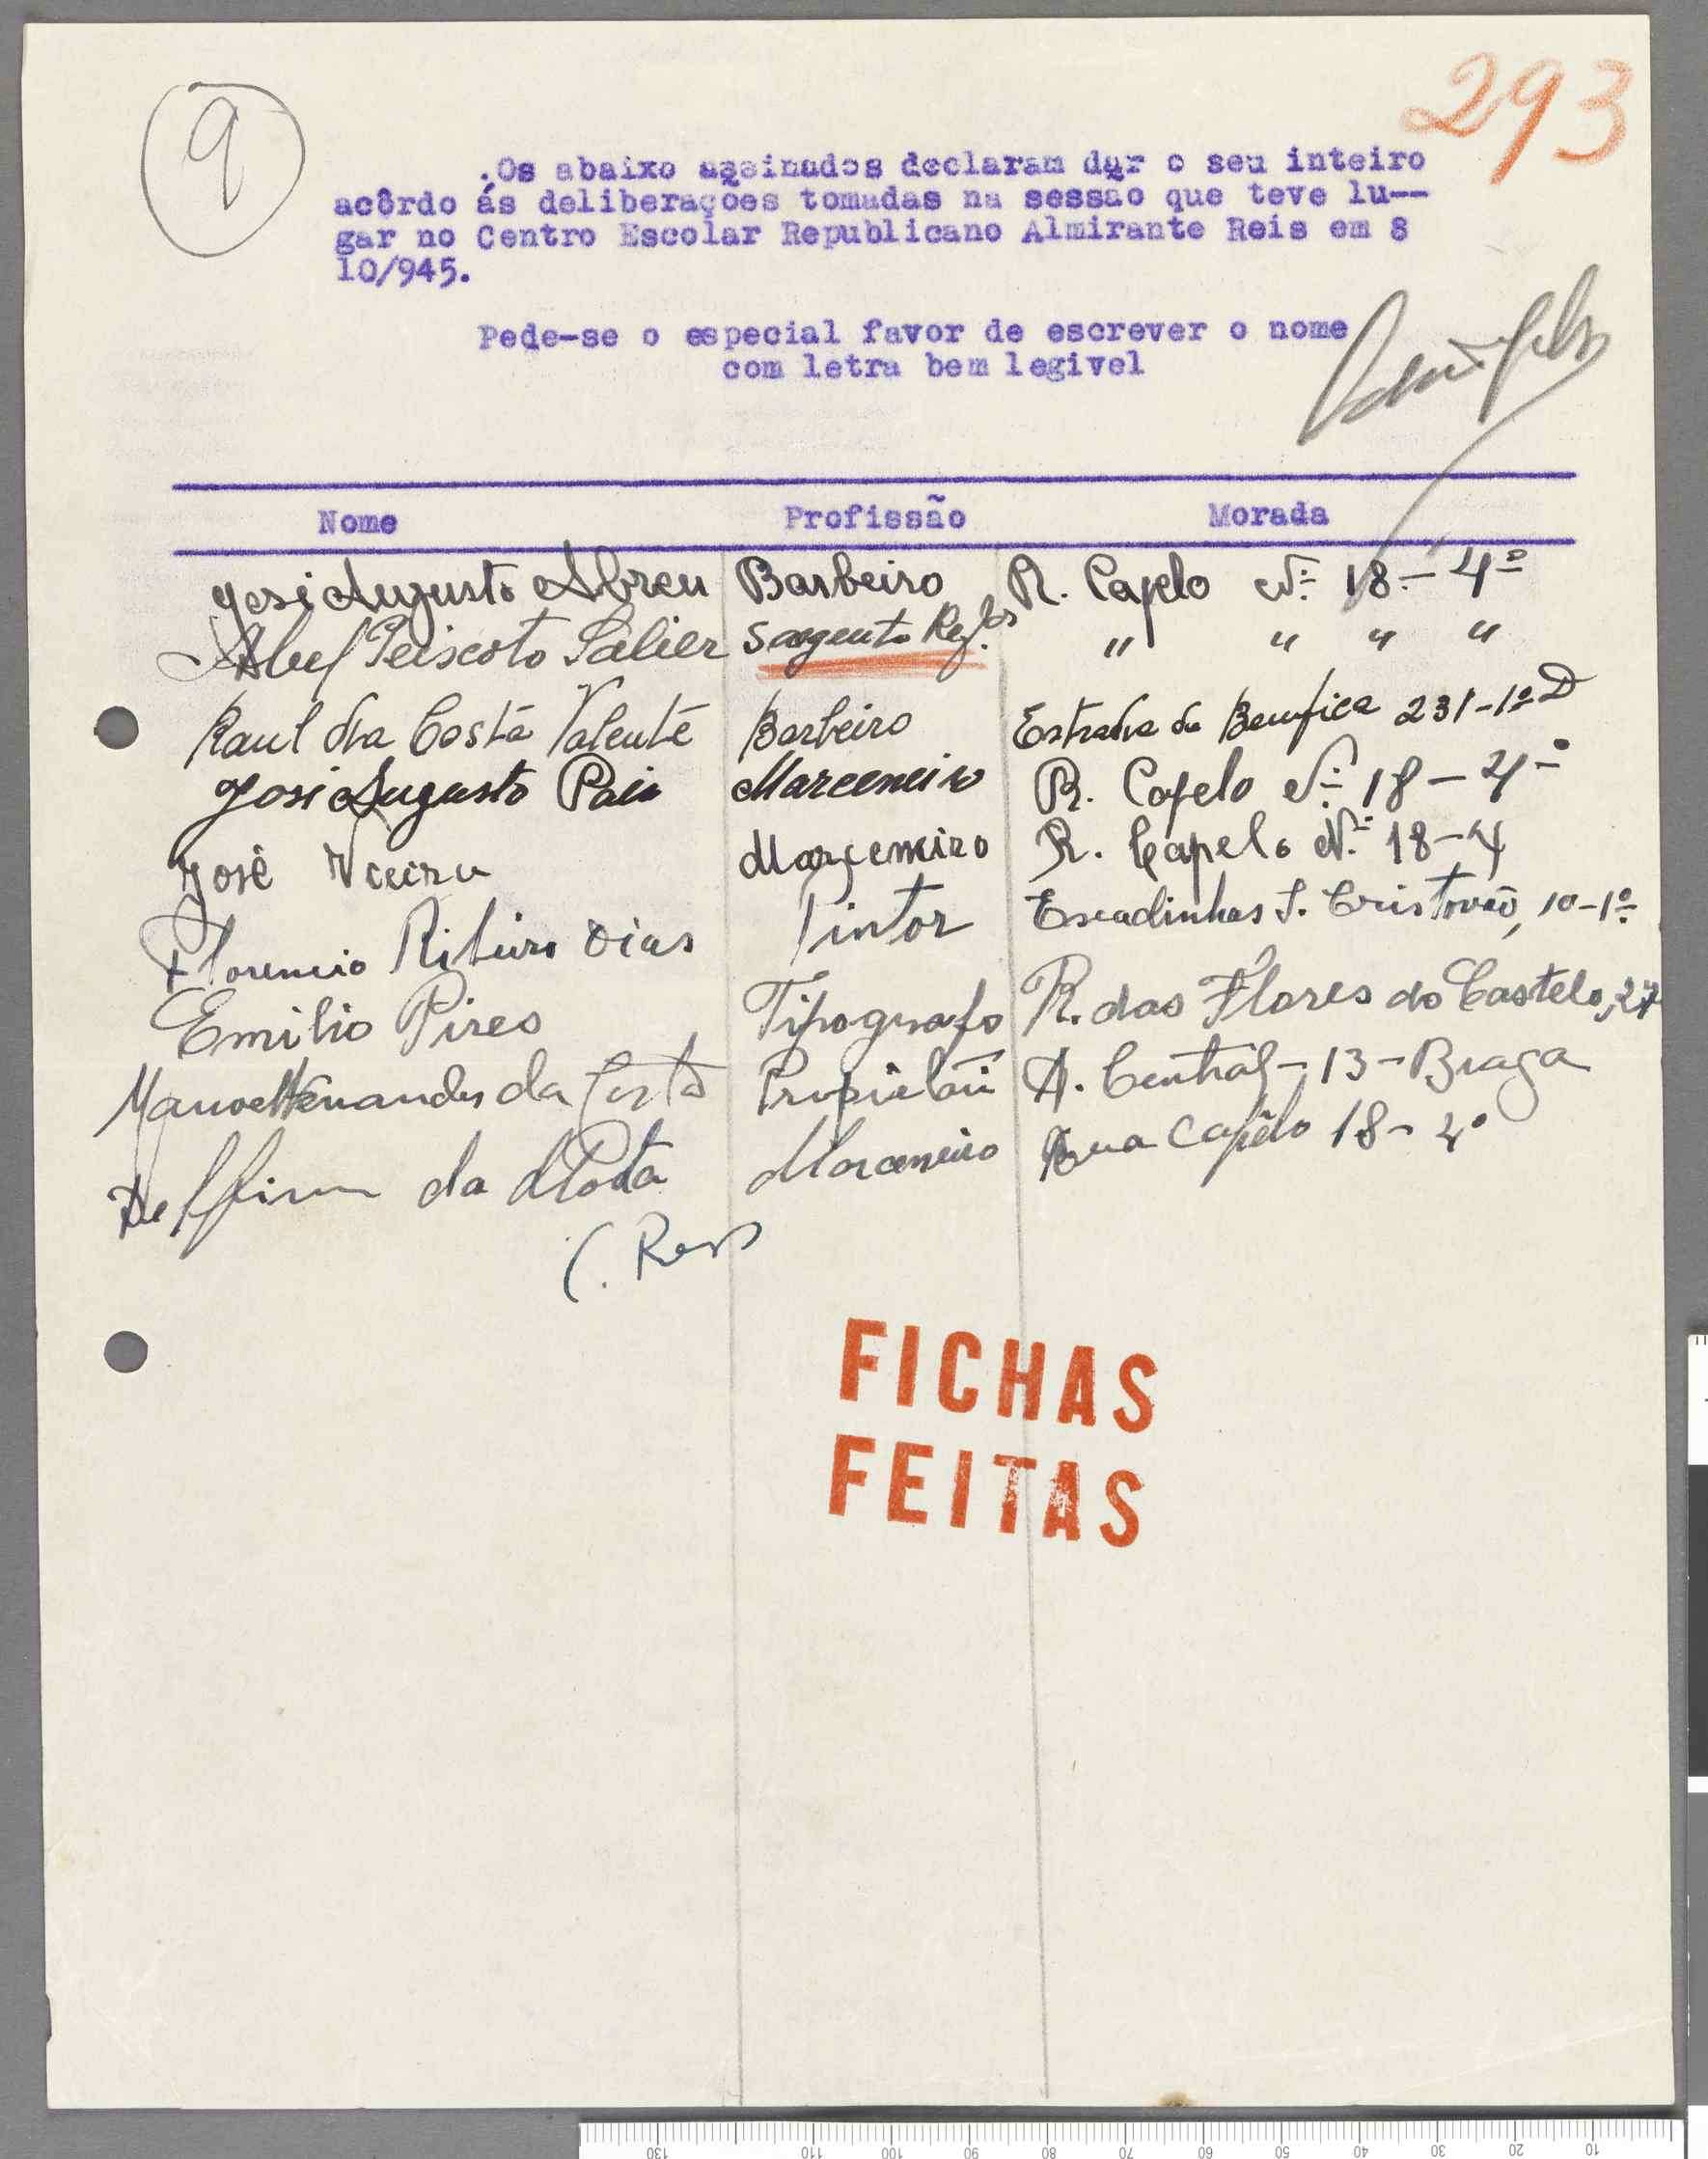 9
293
Os abaixo assinados declaram dar o seu inteiro
acôrdo ás deliberações tomadas na sessão que teve lu--
gar no Centro Escolar Republicano Almirante Reis em 8
10/945.
Pede-se o especial favor de escrever o nome
com letra bem legivel
Nome Profissão Morada
José Augusto Abreu Barbeiro R. Capelo Nº 18-4º
Abel Peixoto Salier Sargento „ „ „ „
Raul da Costa Valente Barbeiro Estrada de Benfica 231-1º D
José Augusto Pais Marceneiro R. Capelo Nº 18-4º
José Vieira Marceneiro R. Capelo Nº 18-4
Florencio Ribeiro Dias Pintor Escadinhas S. Cristovão, 10-1º
Emilio Pires Tipografo R. das Flores do Castelo, 27
Manoel Fernandes da Costa Propietari A. Central-13-Braga
Delfim da Mota Marceneiro Rua Capêlo 18-4º
FICHAS
FEITAS
130 110 100 90 80 70 60 50 40 30 20 10